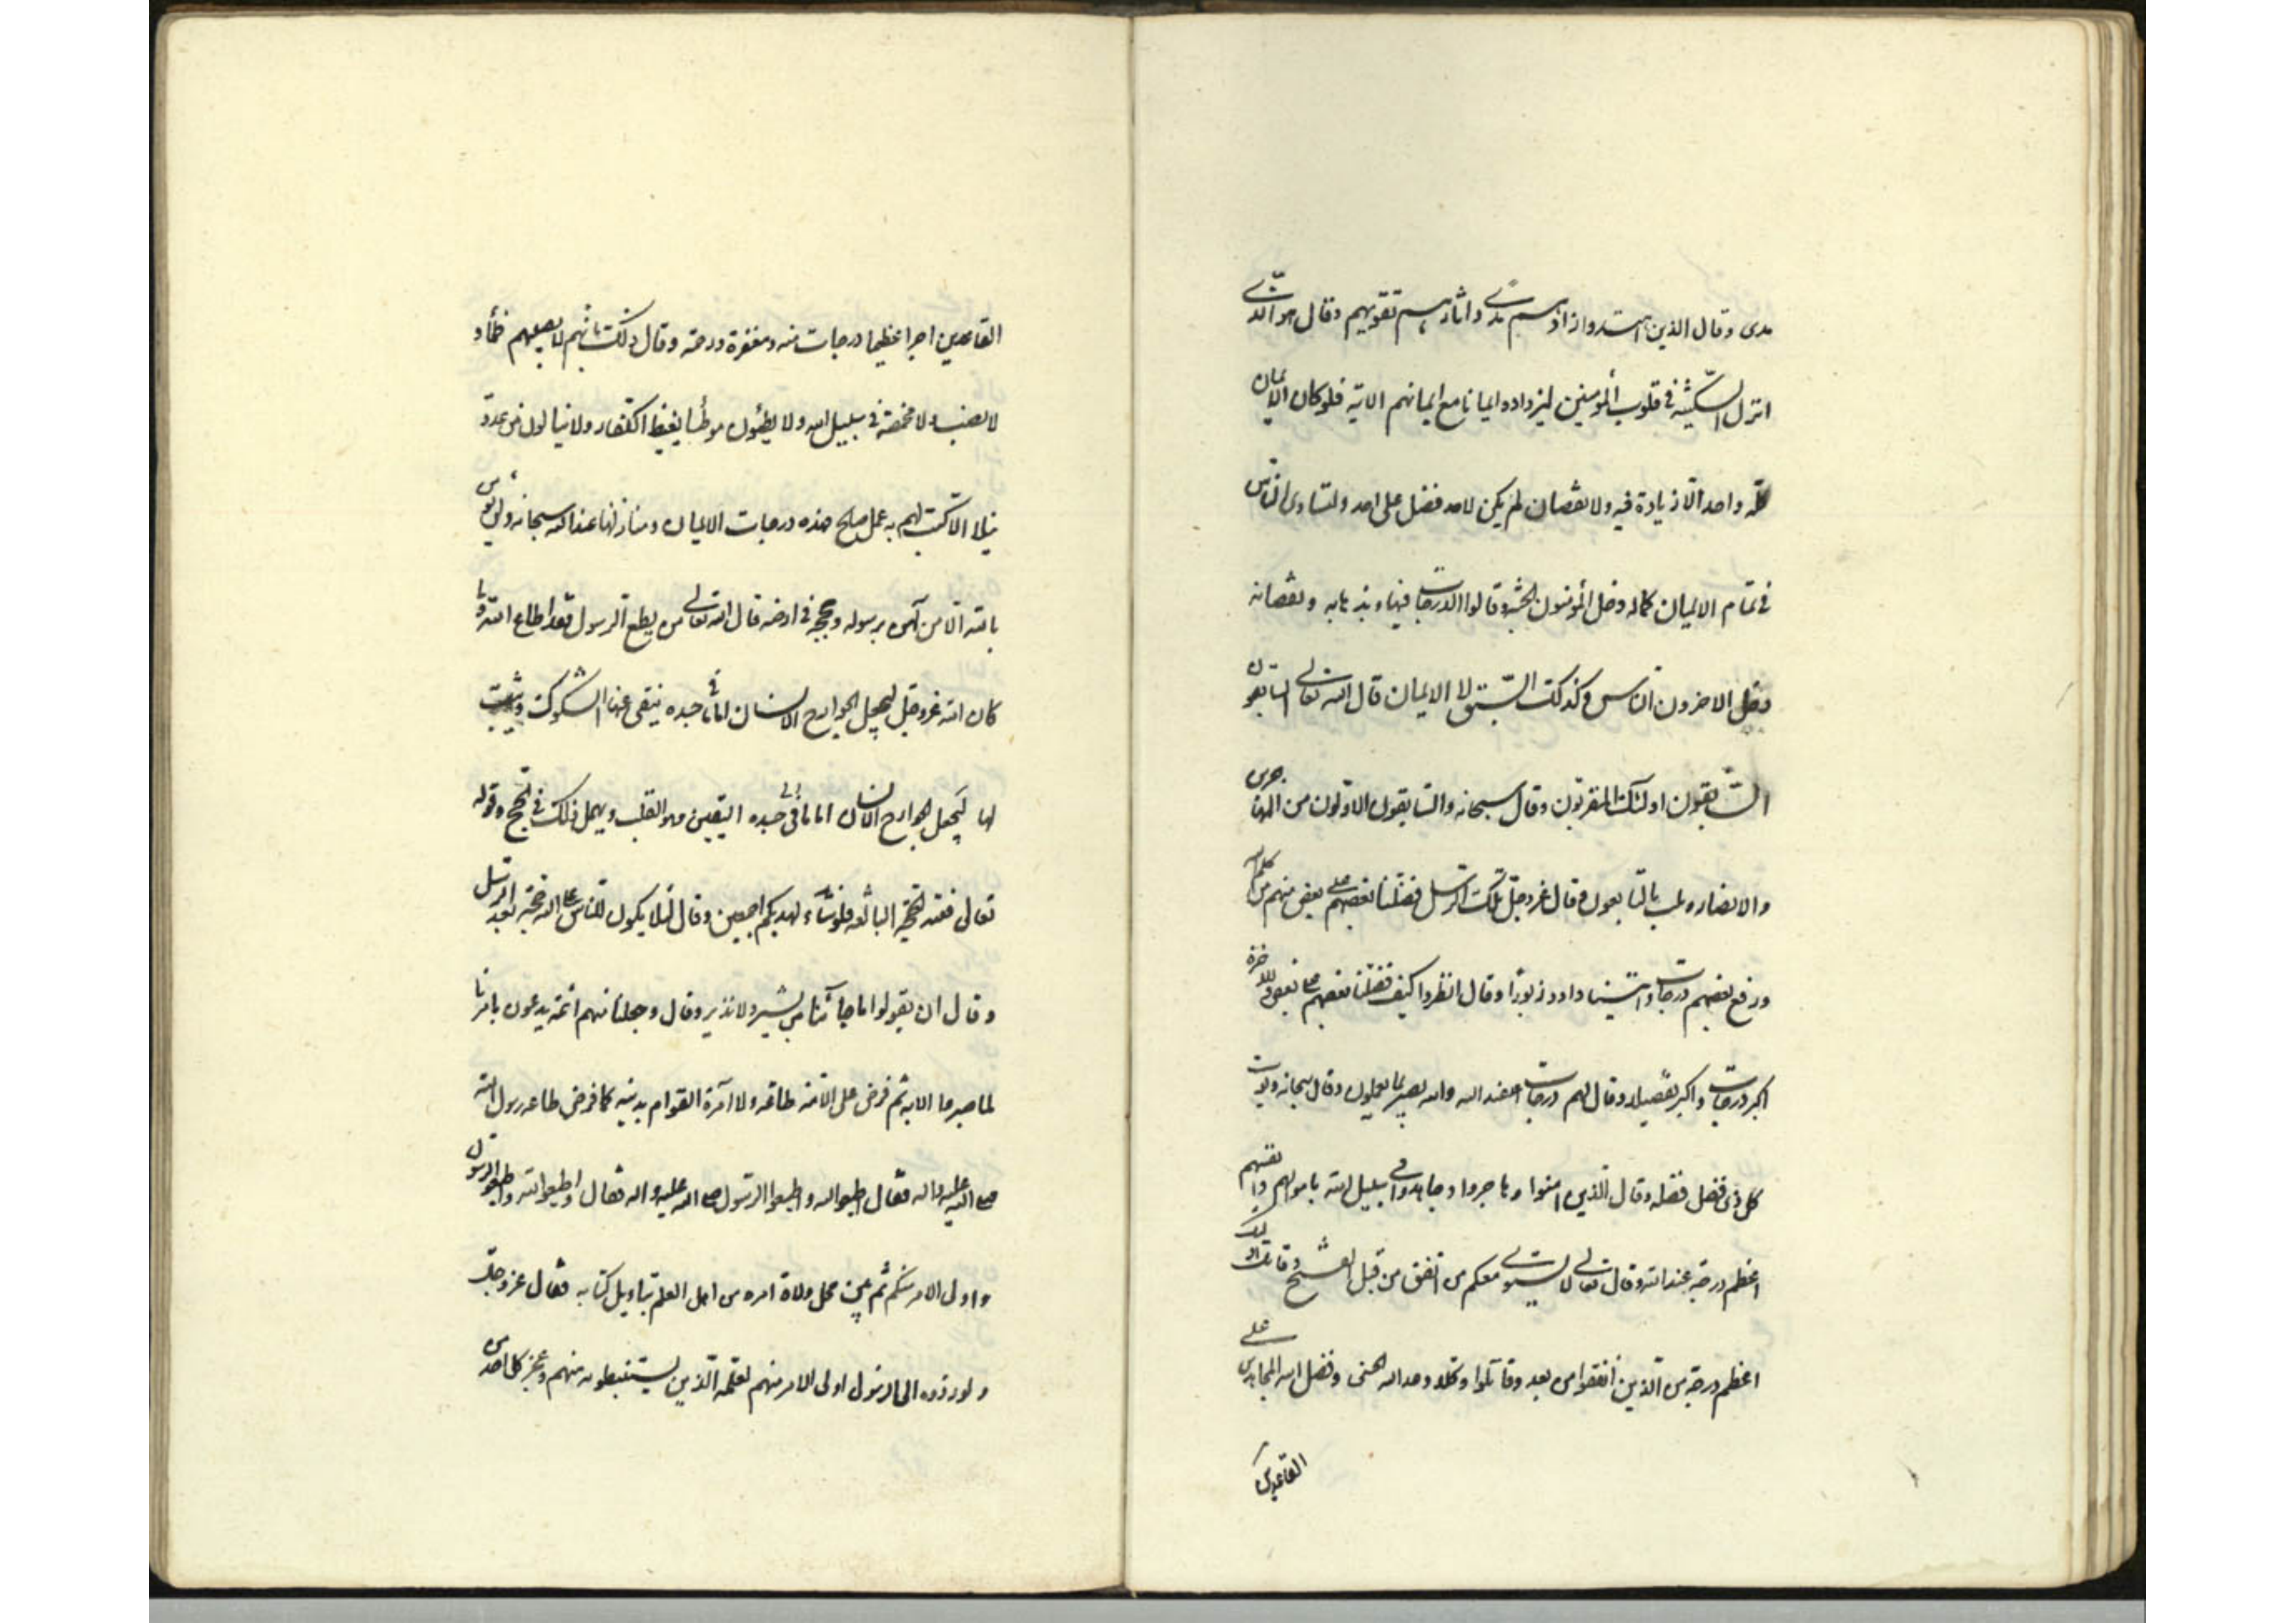 هدى وقال الذين اهتدوا زادهم هدى واثارهم تقويهم وقال هو الذى
انزل السكينة فى قلوب المؤمنين ليزدادوا ايمانا مع ايمانهم الاية فلو كان الايمان
كله واحدا لا زيادة فيه ولا نقصان لم يكن لاحد فضل على احد ولتساوى الناس
فى تمام الايمان كماله دخل المؤمنون الجنة وقالوا الدرجات فيها وبذهابه ونقصانه
دخل الاخرون الناس وكذلك السبق لا الايمان قال الله تعالى السابقون
السابقون اولئك المقربون وقال سبحانه والسابقون الاولون من المهاجرين
والانصار وثلث بالتابعون وقال عز وجل تلك الرسل فضلنا بعضهم على بعض منهم من كلم الله
ورفع بعضهم درجات واتينا داود زبورا وقال انظر كيف فضلنا بعضهم على بعض وللاخرة
اكبر درجات واكبر تفضيلا وقال لهم درجات عند الله والله بصير بما يعملون وقال سبحانه ويوت
كل ذى فضل فضله وقال الذين امنوا وهاجروا وجاهدوا فى سبيل الله باموالهم وانفسهم
اعظم درجة عند الله وقال تعالى لا يستوى معكم من انفق من قبل الفتح وقاتل اولئك
اعظم درجة من الذين انفقوا من بعد وقاتلوا وكلا وعد الله الحسنى وفضل الله المجاهدين على
القاعدين
القاعدين اجرا عظيما درجات منه ومغفرة ورحمة وقال ذلك بانهم لا يصيبهم ظمأ و
لا نصب ولا مخمصة فى سبيل الله ولا يطئون موطئا يغيظ الكفار ولا ينالون من عدو
نيلا الا كتب لهم به عمل صالح هذه درجات الايمان ومنازلها عند الله سبحانه ولن يؤمن
بالله الا من آمن برسوله وحججه فى ارضه قال الله تعالى من يطع الرسول فقد اطاع الله وما
كان الله عز وجل ليجعل لجوارح الانسان اماما فى جسده ينفى عنها الشكوك ويثبت
لها ليجعل لجوارح الانسان اماما فى جسده اليقين وهو القلب ويهمل ذلك فى الحجج وقوله
تعالى فلله الحجة البالغة فلو شاء لهديكم اجمعين وقال لئلا يكون للناس على الله حجة بعد الرسل
وقال ان يقولوا ما جائنا من بشير ولا نذير وقال وجعلنا منهم ائمة يدعون بامرنا
لما صبروا الاية ثم فرض على الامة طاعة ولاة امره القوام بدينه كما فرض طاعة رسول الله
صلى الله عليه واله فقال اطيعوا الله واطيعوا الرسول صلى الله عليه واله فقال واطيعوا الله واطيعوا الرسول
واولى الامر منكم ثم بين محل ولاة امره من اهل العلم بتاويل كتابه فقال عز وجل
ولو ردوه الى الرسول اولى الامر منهم لعلمه الذين يستنبطونه منهم وعجز كل احد من